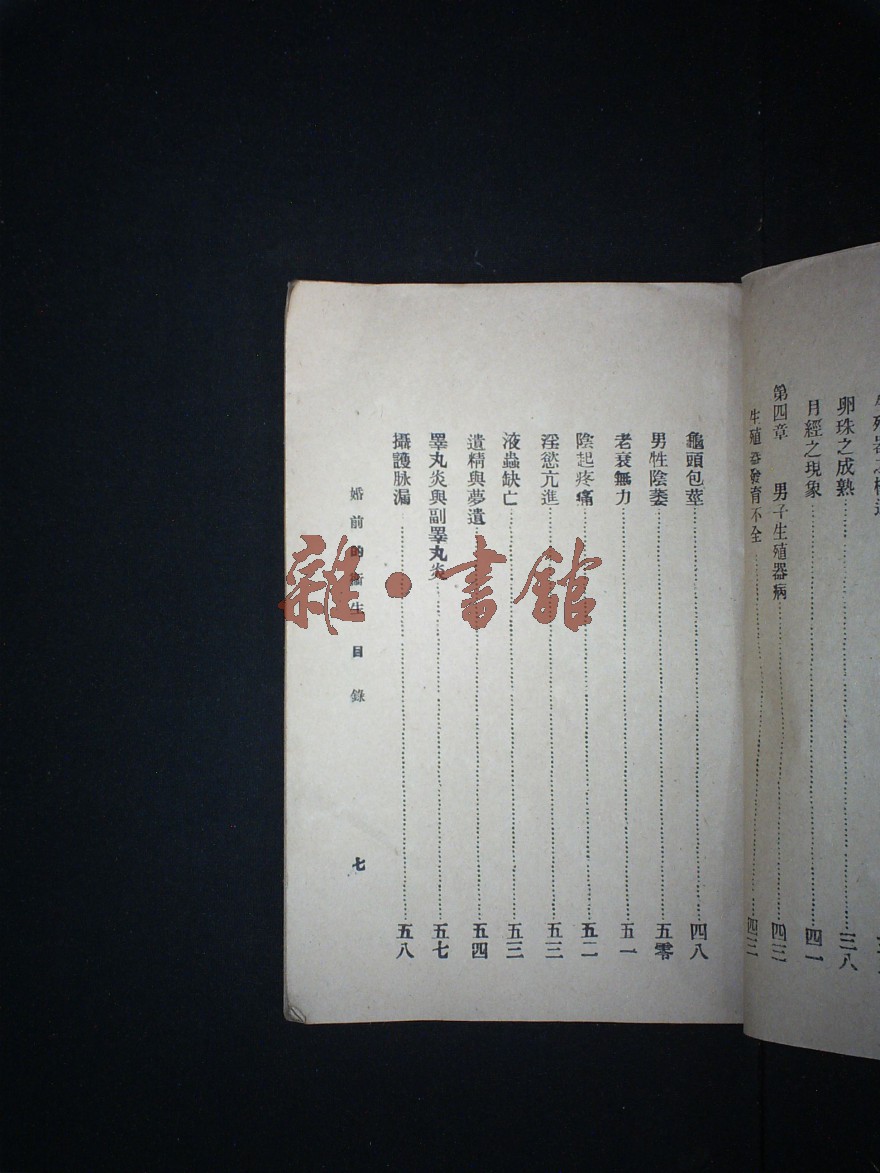 卵珠之成熟……三八
月經之現象……四一
第四章 男子生殖器病……四三
生殖器發育不全……四三
龜頭包莖……四八
男性陰萎……五零
老衰無力……五一
陰起疼痛……五二
淫慾亢進……五三
液蟲缺亡……五三
遺精與夢遺……五四
睪丸炎與副睪丸炎……五七
攝護脉漏……五八
婚前的衞生 目錄 七
雜·書館